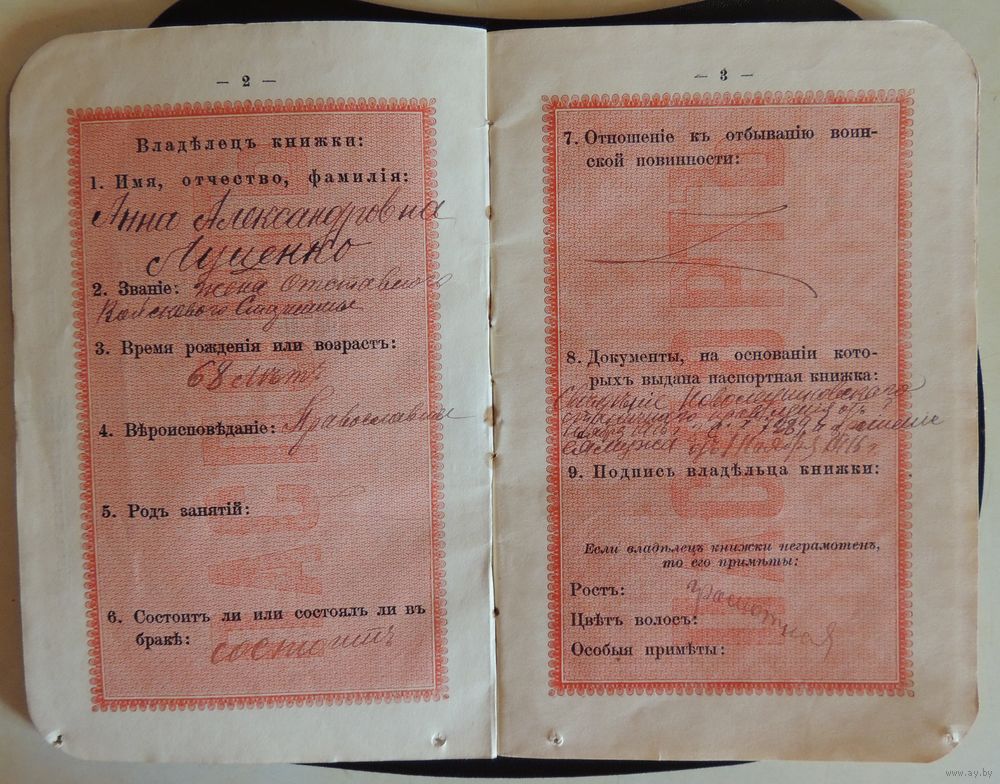 — 2 —
Владѣлецъ книжки:
1. Имя, отчество, фамилія:
Анна Александровна
Луценко
2. Званіе: жена Отставного
Войскового Старшины
3. Время рожденія или возрастъ:
68 лѣтъ
4. Вѣроисповѣданіе: Православная
5. Родъ занятій:
6. Состоитъ ли или состоялъ ли въ
бракѣ: состоитъ
— 3 —
7. Отношеніе къ отбыванію воин-
ской повинности:
8. Документы, на основаніи кото-
рыхъ выдана паспортная книжка:
правленія отъ
1916 г. № 7284 и
мужа отъ 1 Ноября 1916 г.
9. Подпись владѣльца книжки:
Если владѣлецъ книжки неграмотенъ,
то его примѣты:
Ростъ:
Цвѣтъ волосъ:
Особыя примѣты:
грамотная
ПАСПОРТЪ
www.ay.by